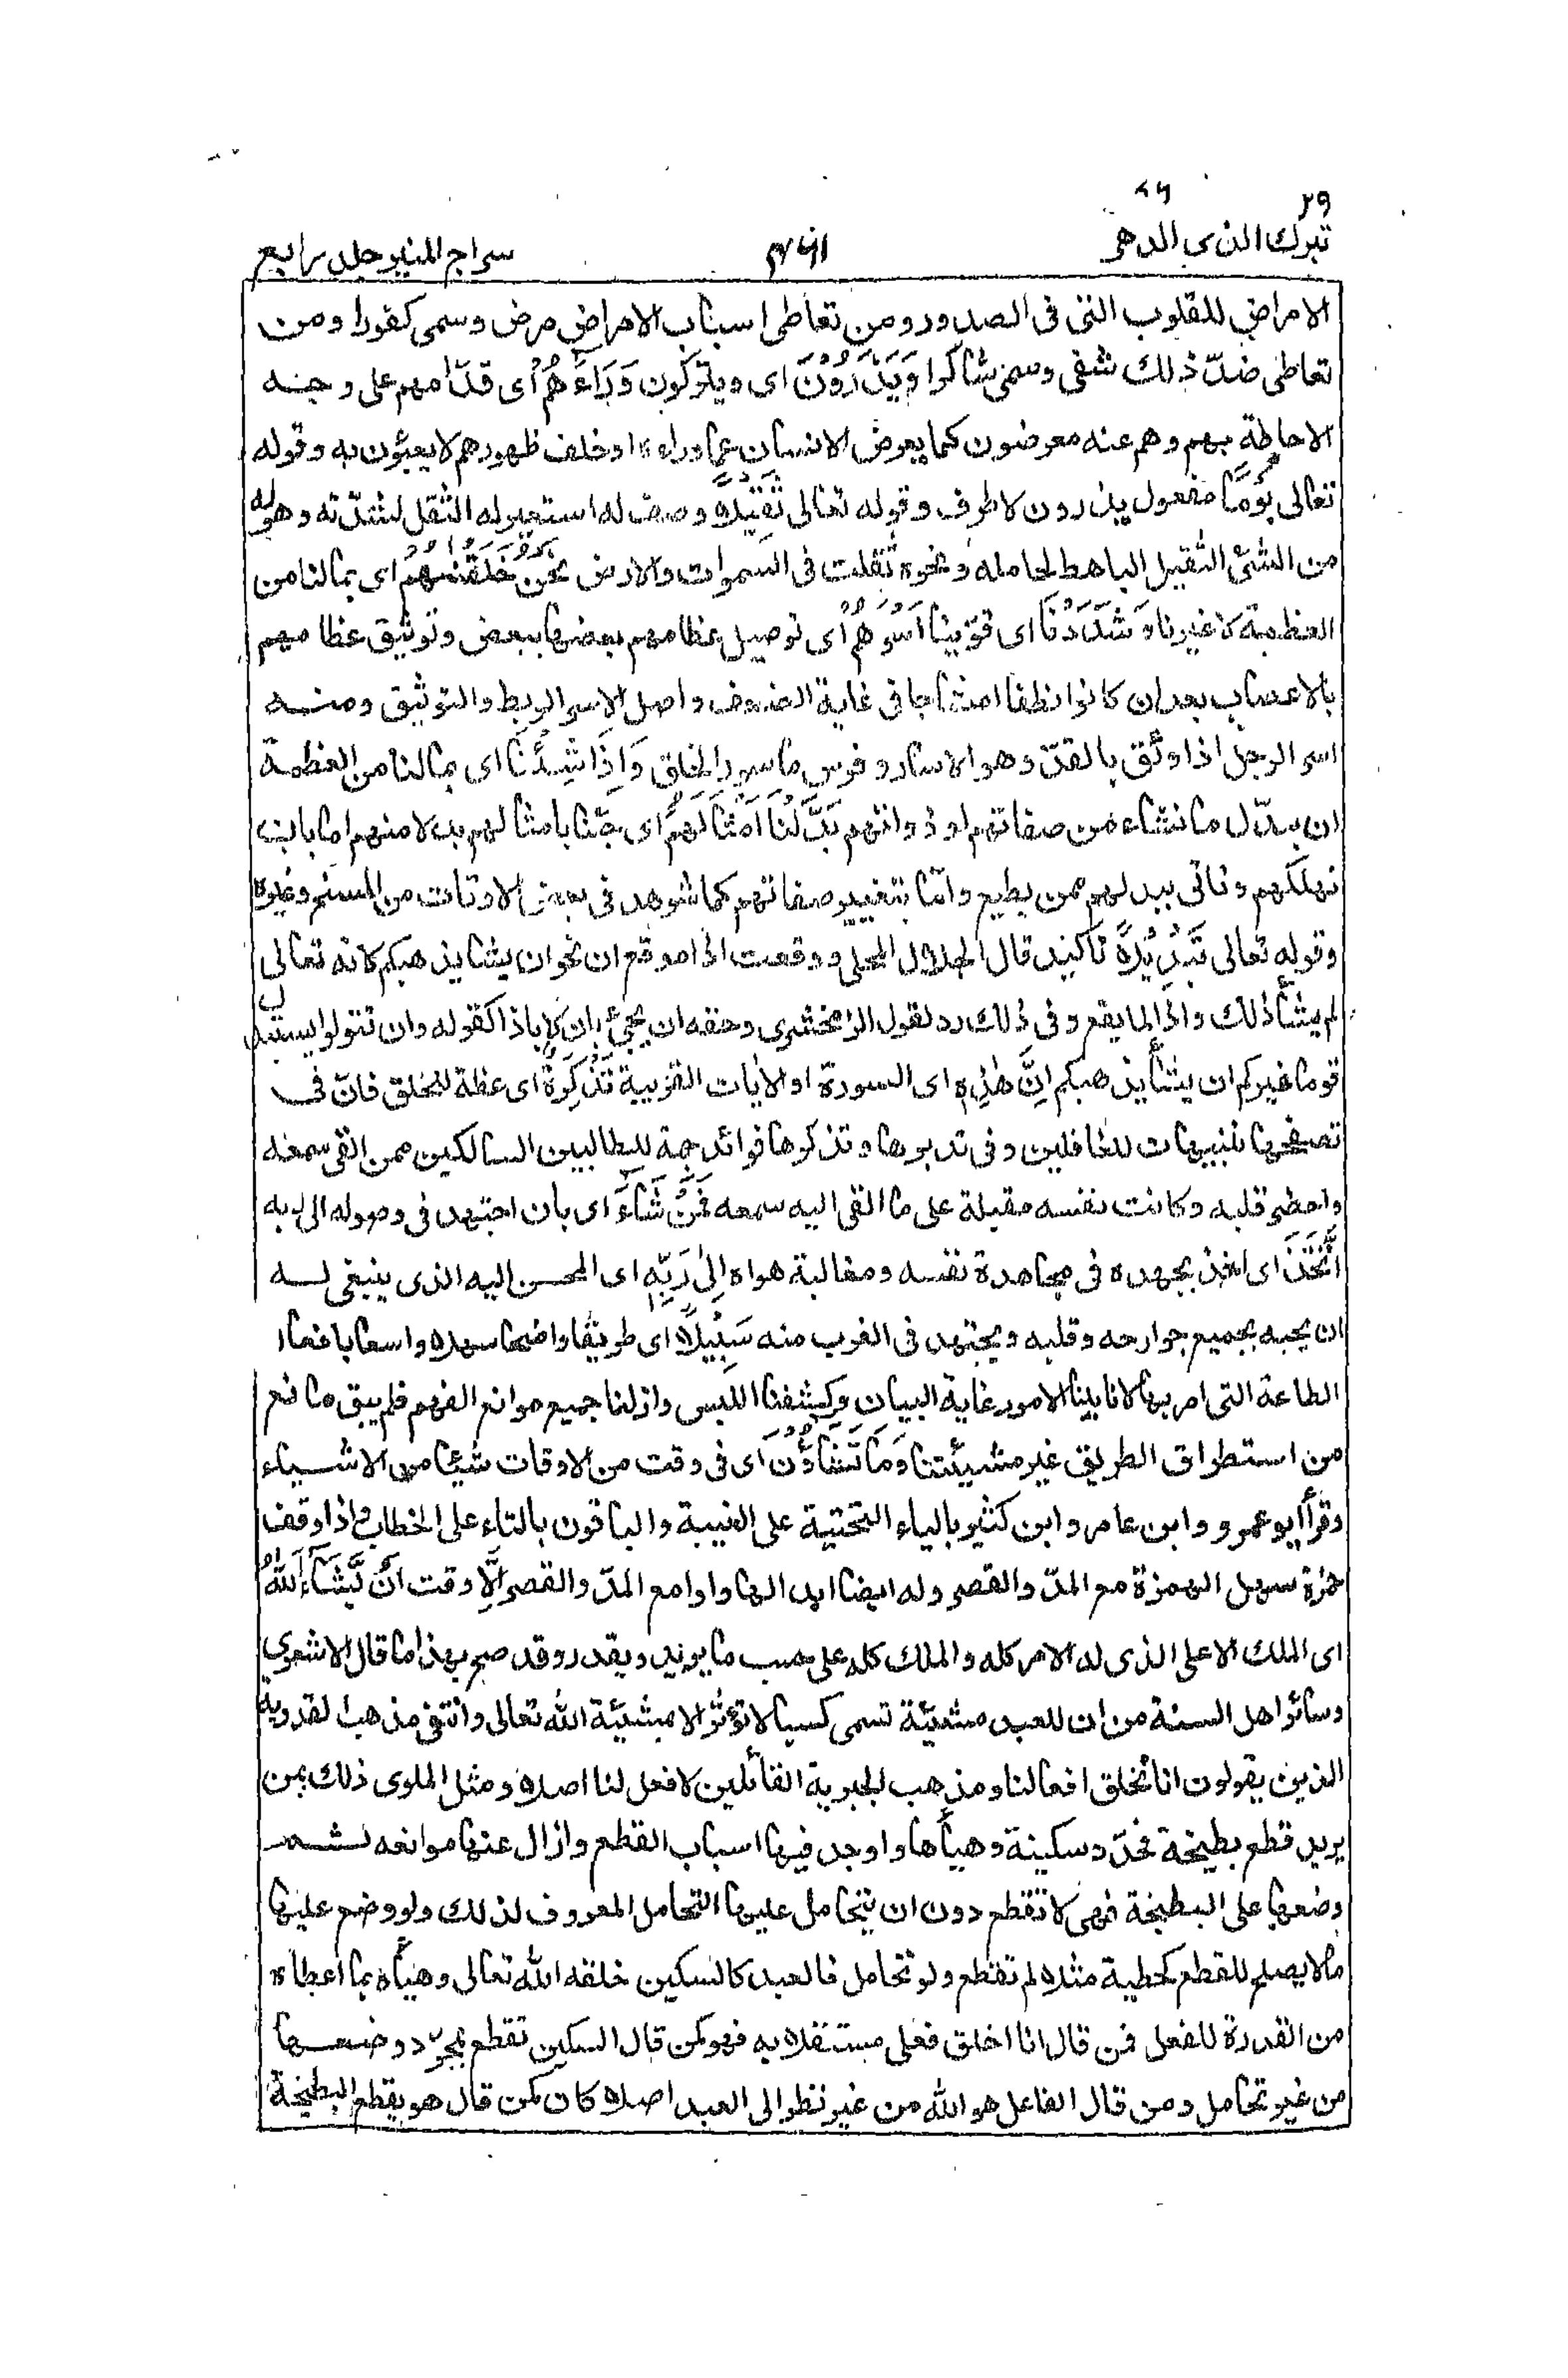 ٢٩
تبرك الذى الدهر
سراج المنير جلد رابع
الامراض للقلوب التى فى الصدور ومن تعاطى اسباب الامراض مرض وسمى كفورا ومن
تعاطى ضدّ ذلك شفى وسمى شاكرا وَيَذَرُوْنَ اى ويتركون وَرَآءَهُمْ اى قدّامهم على وجه
الاحاطة بهم وهم عنه معرضون كما يعرض الانسان عما وراءه او خلف ظهورهم لا يعبئون به وقوله
تعالى يَوْمًا مفعول يذرون لا ظرف وقوله تعالى ثَقِيْلًا وصف له استعير له الثقل لشدّته وهوله
من الشئ الثقيل الباهظ لحامله ونحوه ثقلت فى السموات والارض نَحْنُ خَلَقْنٰهُمْ اى بما لنا من
العظمة لا غيرنا وَشَدَدْنَا اى قوّينا اَسْرَهُمْ اى توصيل عظامهم بعضها ببعض وتوثيق عظامهم
بالاعصاب بعد ان كانوا نطفا امشاجا فى غاية الضعف واصل الاسر الربط والتوثيق ومنه
اسر الرجل اذا وثق بالقدّ وهو الاسار وفرس ماسور الخلق وَاِذَا شِئْنَا اى بما لنا من العظمة
ان نبدّل ما نشاء من صفاتهم او ذواتهم بَدَّلْنَا اَمْثَالَهُمْ اى جئنا بامثالهم بدلا منهم اما بان
نهلكهم وناتى ببدلهم ممن يطيع وامّا بتغيير صفاتهم كما شوهد فى بعض الاوقات من المسخ وغيره
وقوله تعالى تَبْدِيْلًا تاكيد قال الجلال المحلى ووقعت اذا موقع ان نحو ان يشا يذهبكم لانه تعالى
لم يشأ ذلك واذا لما يقع وفى ذلك رد لقول الزمخشرى وحقه ان يجئ بان لا باذا كقوله وان تتولوا يستبدل
قوما غيركم ان يشأ يذهبكم اِنَّ هٰذِهٖ اى السورة او الايات القريبة تَذْكِرَةٌ اى عظة للخلق فانّ فى
تصفحها تنبيهات للغافلين وفى تدبرها وتذكرها فوائد جمة للطالبين السالكين ممن القى سمعه
واحضر قلبه وكانت نفسه مقبلة على ما القى اليه سمعه فَمَنْ شَآءَ اى بان اجتهد فى وصوله الى ربه
اتَّخَذَ اى اخذ بجهده فى مجاهدة نفسه ومغالبة هواه اِلٰى رَبِّهٖ اى المحسن اليه الذى ينبغى له
ان يحبه بجميع جوارحه وقلبه ويجتهد فى القرب منه سَبِيْلًا اى طريقا واضحا سهلا واسعا بافعال
الطاعة التى امر بها لانا بينا الامور غاية البيان وكشفنا اللبس وازلنا جميع موانع الفهم فلم يبق مانع
من استطراق الطريق غير مشيئتنا وَمَا تَشَآؤُنَ اى فى وقت من الاوقات شيئا من الاشياء
وقرأ ابو عمرو وابن عامر وابن كثير بالياء التحتية على الغيبة والباقون بالتاء على الخطاب واذا وقف
حمزة سهل الهمزة مع المدّ والقصر وله ايضا ابدالها واوا مع المدّ والقصر اِلَّا وقت اَنْ يَّشَآءَ اللّٰهُ
اى الملك الاعلى الذى له الامر كله والملك كله على حسب ما يريد ويقدر وقد صح بهذا ما قال الاشعرى
وسائر اهل السنة من ان للعبد مشيّئة تسمى كسبا لا تؤثر الا بمشيّئة الله تعالى وانتفى مذهب القدرية
الذين يقولون انا نخلق افعالنا ومذهب الجبرية القائلين لا فعل لنا اصلا ومثل الملوى ذلك بمن
يريد قطع بطيخة فحدّد سكينة وهيأها واوجد فيها اسباب القطع وازال عنها موانعه ثم
وضعها على البطيخة فهى لا تقطع دون ان يتحامل عليها التحامل المعروف لذلك ولو وضع عليها
مالا يصلح للقطع كحطبة مثلا لم تقطع ولو تحامل فالعبد كالسكين خلقه الله تعالى وهيأه بما اعطاه
من القدرة للفعل فمن قال انا اخلق فعلى مستقلا به فهو كمن قال السكين تقطع بمجرّد وضعها
من غير تحامل ومن قال الفاعل هو الله من غير نظر الى العبد اصلا كان كمن قال هو يقطع البطيخة